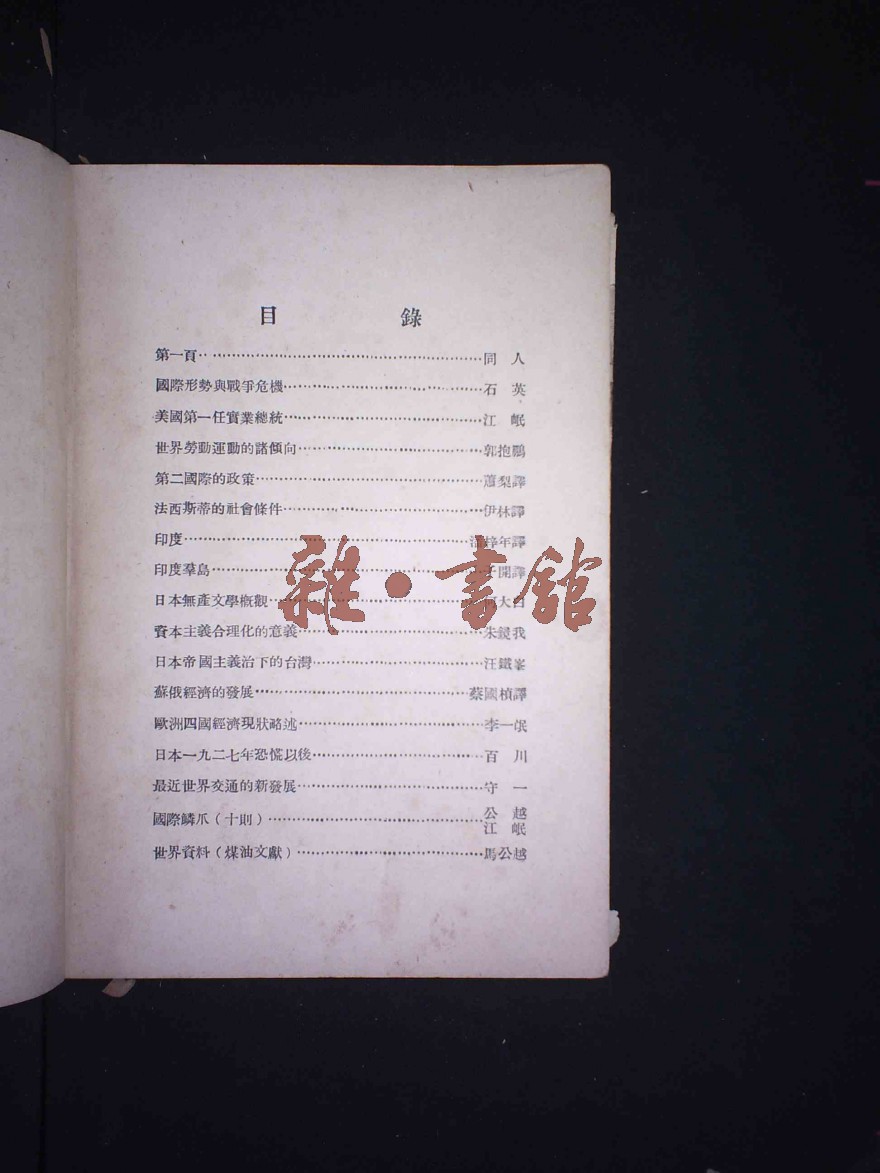 目 錄
第一頁……同 人
國際形勢與戰爭危機……石 英
美國第一任實業總統……江 岷
世界勞動運動的諸傾向……郭抱鵬
第二國際的政策……蕭梨譯
法西斯蒂的社會條件……伊林譯
印度……梓年譯
印度羣島……開譯
日本無產文學概觀……大白
資本主義合理化的意義……朱鏡我
日本帝國主義治下的台灣……汪鐵峯
蘇俄經濟的發展……蔡國楨譯
歐洲四國經濟現狀略述……李一氓
日本一九二七年恐慌以後……百 川
最近世界交通的新發展……守 一
國際鱗爪（十則）……公 越
江 岷
世界資料（煤油文獻）……馬公越
雜·書館